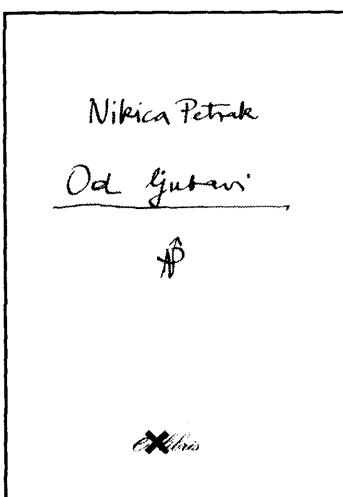 Nikica Petrak
Od ljubavi
NP
exlibris